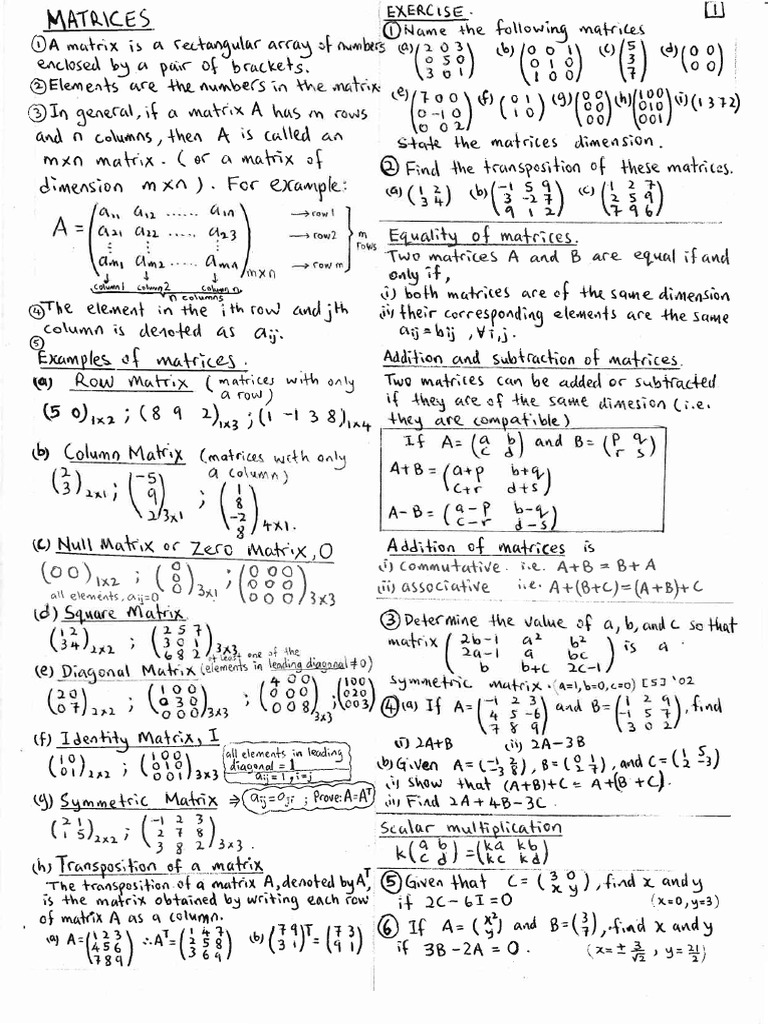 MATRICES
① A matrix is a rectangular array of numbers
enclosed by a pair of brackets.
② Elements are the numbers in the matrix
③ In general, if a matrix A has m rows
and n columns, then A is called an
m×n matrix. (or a matrix of
dimension m×n). For example:
A = (a11 a12 ...... a1n → row 1
a21 a22 ...... a23 → row 2
⋮ ⋮ ⋮
am1 am2 ...... amn) m×n → row m
m rows
column 1 column 2 column n
n columns
④ The element in the ith row and jth
column is denoted as aij.
⑤
Examples of matrices.
(a) Row Matrix (matrices with only
a row)
(5 0)1×2 ; (8 9 2)1×3 ; (1 -1 3 8)1×4
(b) Column Matrix (matrices with only
a column)
(2
3)2×1 ; (-5
9
2)3×1 ; (1
8
-2
8)4×1.
(c) Null Matrix or Zero Matrix, O
(0 0)1×2 ; (0
0
0)3×1 ; (0 0 0
0 0 0
0 0 0)3×3
all elements, aij=0
(d) Square Matrix
(1 2
3 4)2×2 ; (2 5 7
3 0 1
6 8 2)3×3
at least one of the
(e) Diagonal Matrix (elements in leading diagonal ≠0)
(2 0
0 7)2×2 ; (1 0 0
0 3 0
0 0 0)3×3 ; (4 0 0
0 0 0
0 0 8)3×3 ; (1 0 0
0 2 0
0 0 3)
(f) Identity Matrix, I
(1 0
0 1)2×2 ; (1 0 0
0 1 0
0 0 1)3×3
all elements in leading
diagonal = 1
aij = 1, i=j
(g) Symmetric Matrix ⇒ aij = aji ; Prove: A=Aᵀ
(2 1
1 5)2×2 ; (-1 2 3
2 7 8
3 8 2)3×3.
(h) Transposition of a matrix
The transposition of a matrix A, denoted by Aᵀ,
is the matrix obtained by writing each row
of matrix A as a column.
(a) A = (1 2 3
4 5 6
7 8 9) ∴Aᵀ = (1 4 7
2 5 8
3 6 9) (b) (7 9
3 1)ᵀ = (7 3
9 1)
EXERCISE.
1
① Name the following matrices
(a) (2 0 3
0 5 0
3 0 1) (b) (0 0 1
0 1 0
1 0 0) (c) (5
3
7) (d) (0 0
0 0)
(e) (7 0 0
0 -1 0
0 0 2) (f) (0 1
1 0) (g) (0 0
0 0
0 0) (h) (1 0 0
0 1 0
0 0 1) (i) (1 3 7 2)
State the matrices dimension.
② Find the transposition of these matrices.
(a) (1 2
3 4) (b) (-1 5 9
3 -2 7
9 1 2) (c) (1 2 7
2 5 9
7 9 6)
Equality of matrices.
Two matrices A and B are equal if and
only if,
(i) both matrices are of the same dimension
(ii) their corresponding elements are the same
aij = bij , ∀i,j.
Addition and subtraction of matrices.
Two matrices can be added or subtracted
if they are of the same dimesion (i.e.
they are compatible)
If A = (a b
c d) and B = (p q
r s)
A+B = (a+p b+q
c+r d+s)
A-B = (a-p b-q
c-r d-s)
Addition of matrices is
(i) commutative. i.e. A+B = B+A
(ii) associative i.e. A+(B+C)=(A+B)+C
③ Determine the value of a, b, and c so that
matrix (2b-1 a² b²
2a-1 a bc
b b+c 2c-1) is a
symmetric matrix. (a=1, b=0, c=0) [5] '02
④ (a) If A = (-1 2 3
4 5 -6
7 8 9) and B = (1 2 9
-1 5 7
3 0 2), find
(i) 2A+B (ii) 2A-3B
(b) Given A = (-1 2
-3 8), B = (0 1
2 7), and C = (1 5
2 -3)
(i) Show that (A+B)+C = A+(B+C).
(ii) Find 2A+4B-3C.
Scalar multiplication
k(a b
c d) = (ka kb
kc kd)
⑤ Given that C = (3 0
x y), find x and y
if 2C-6I=0 (x=0, y=3)
⑥ If A = (x²
y) and B = (3
7), find x and y
if 3B-2A = 0. (x = ± 3/√2 , y = 21/2)